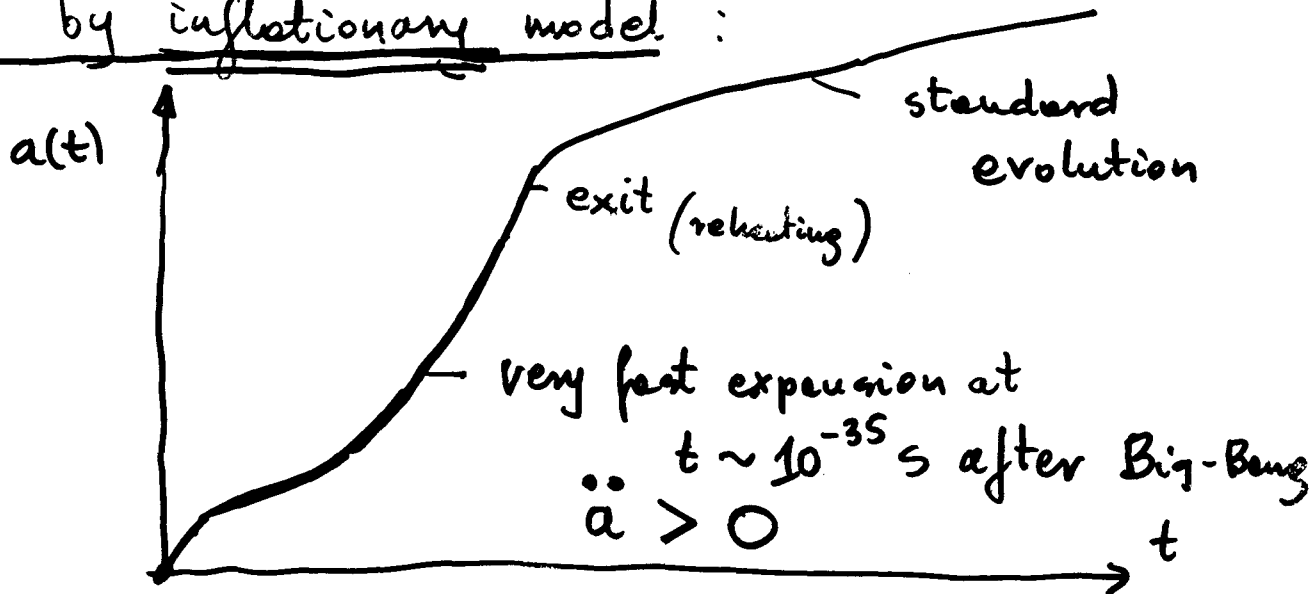 by inflationary model :
a(t)
standard
evolution
exit (reheating)
very fast expansion at
t ~ 10⁻³⁵ s after Big-Bang
ä > 0
t